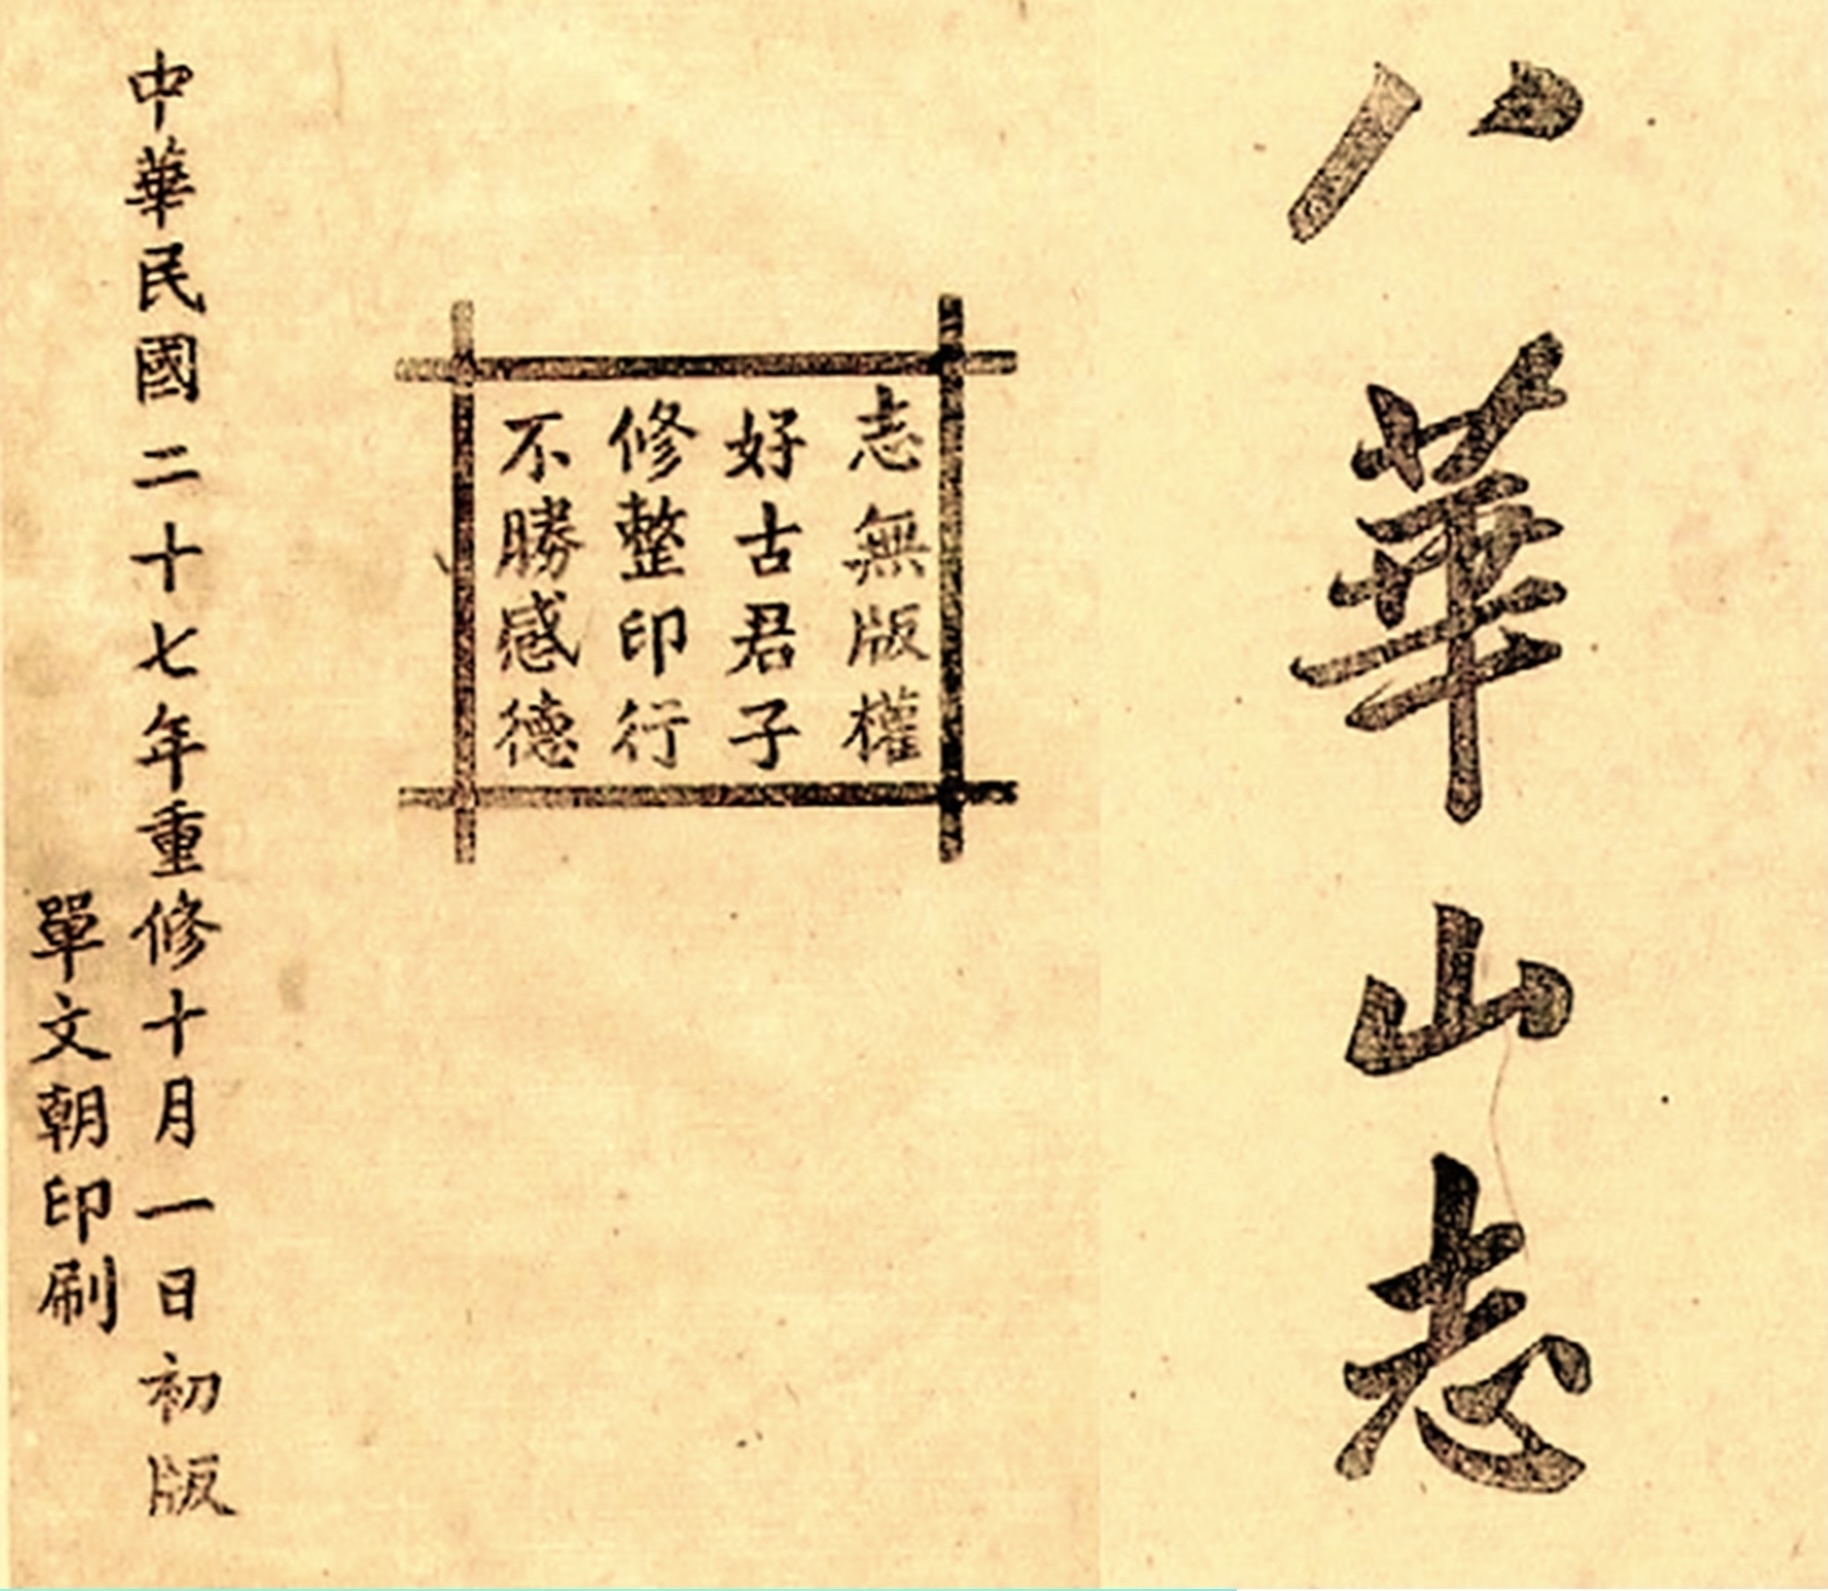 八華山志
志無版權
好古君子
修整印行
不勝感德
中華民國二十七年重修十月一日初版
單文朝印刷